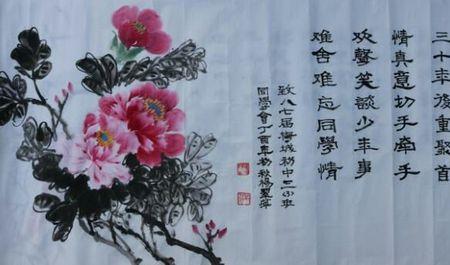 三十年後重聚首
情真意切手牽手
欢聲笑談少年事
难舍难忘同學情
致八七届海城初中三
同學會丁酉年初秋楊翠萍